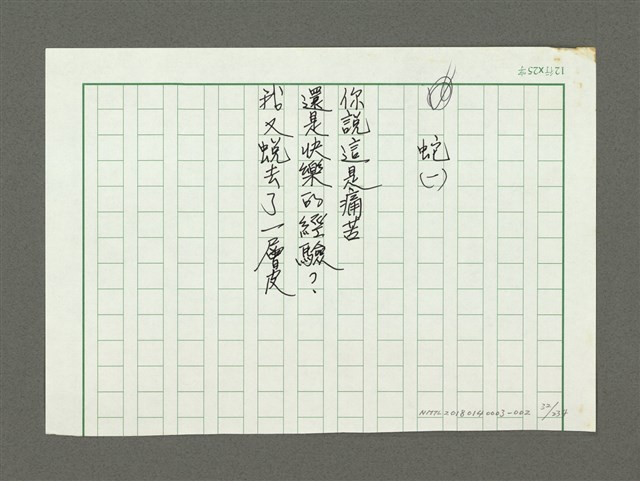 蛇(一)
你說這是痛苦
還是快樂的經驗？
我又蛻去了一層皮
12行×25字
NMTL20180140003-002 32/234